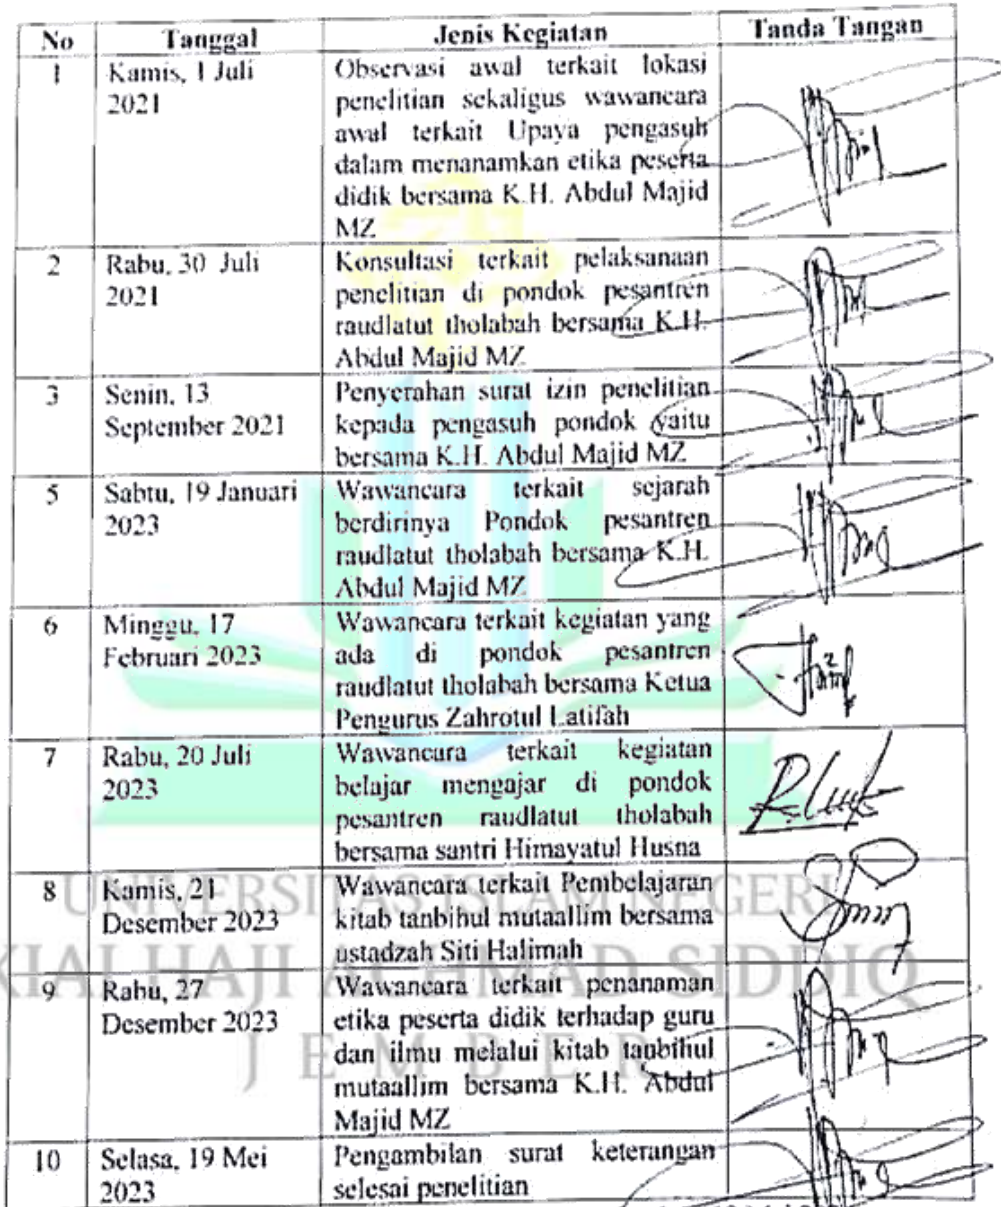 No Tanggal Jenis Kegiatan Tanda Tangan
1 Kamis, 1 Juli Observasi awal terkait lokasi
2021 penelitian sekaligus wawancara
awal terkait Upaya pengasuh
dalam menanamkan etika peserta
didik bersama K.H. Abdul Majid
MZ
2 Rabu, 30 Juli Konsultasi terkait pelaksanaan
2021 penelitian di pondok pesantren
raudlatut tholabah bersama K.H.
Abdul Majid MZ
3 Senin, 13 Penyerahan surat izin penelitian
September 2021 kepada pengasuh pondok yaitu
bersama K.H. Abdul Majid MZ
5 Sabtu, 19 Januari Wawancara terkait sejarah
2023 berdirinya Pondok pesantren
raudlatut tholabah bersama K.H.
Abdul Majid MZ
6 Minggu, 17 Wawancara terkait kegiatan yang
Februari 2023 ada di pondok pesantren
raudlatut tholabah bersama Ketua
Pengurus Zahrotul Latifah
7 Rabu, 20 Juli Wawancara terkait kegiatan
2023 belajar mengajar di pondok
pesantren raudlatut tholabah
bersama santri Himayatul Husna
8 Kamis, 21 Wawancara terkait Pembelajaran
Desember 2023 kitab tanbihul mutaallim bersama
ustadzah Siti Halimah
9 Rabu, 27 Wawancara terkait penanaman
Desember 2023 etika peserta didik terhadap guru
dan ilmu melalui kitab tanbihul
mutaallim bersama K.H. Abdul
Majid MZ
10 Selasa, 19 Mei Pengambilan surat keterangan
2023 selesai penelitian
UNIVERSITAS ISLAM NEGERI
KIAI HAJI ACHMAD SIDDIQ
JEMBER